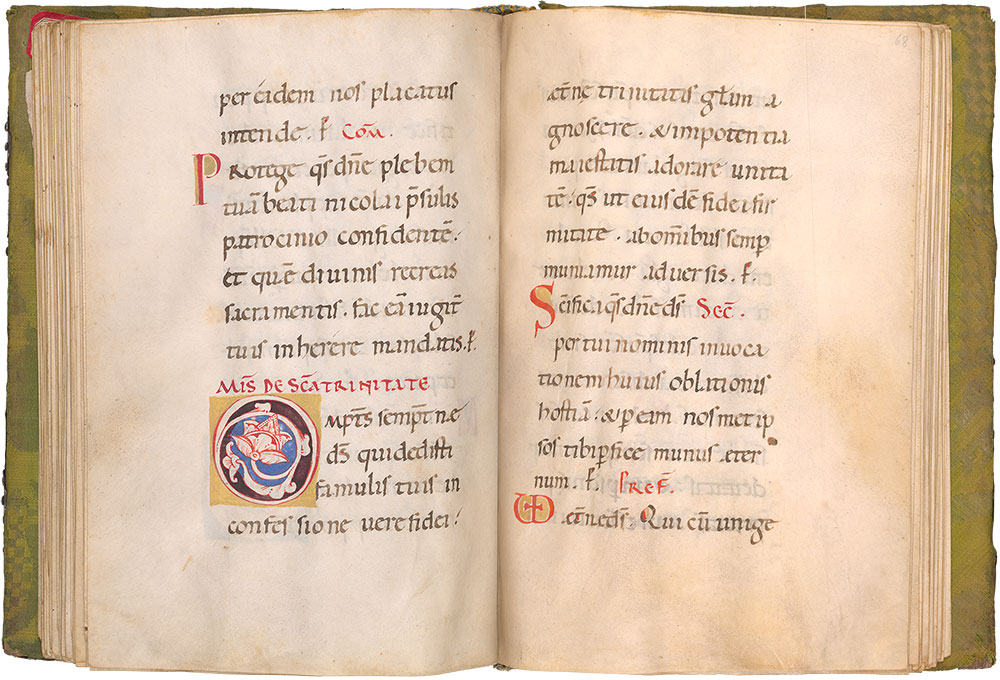 per eidem nos placatus
intende. ꝑ Com̄.
Protege q̄s dn̄e plebem
tuā beati nicolai p̄sulis
patrocinio confidentē.
et quē divinis recreas
sacramentis. fac eā iugit̄
tuis inherere mandatis. ꝑ
MIS̄ DE SC̄A TRINITATE
OMPT̄S sempit̄ne
ds̄ qui dedisti
famulis tuis in
confessione vere fidei.
68
et̄ne trinitatis gl̄am a
gnoscere. & in potentia
maiestatis adorare unita
tē. q̄s ut eiusdē fidei fir
mitate. ab om̄ibus semp̄
muniamur adversis. ꝑ
Sc̄ifica q̄s dn̄e ds̄ Sec̄.
per tui nominis invoca
tionem huius oblationis
hostiā. & p̄ eam nosmetip
sos tibi p̄fice munus eter
num. ꝑ. Pref̄.
VD et̄ne ds̄. Qui cū unige